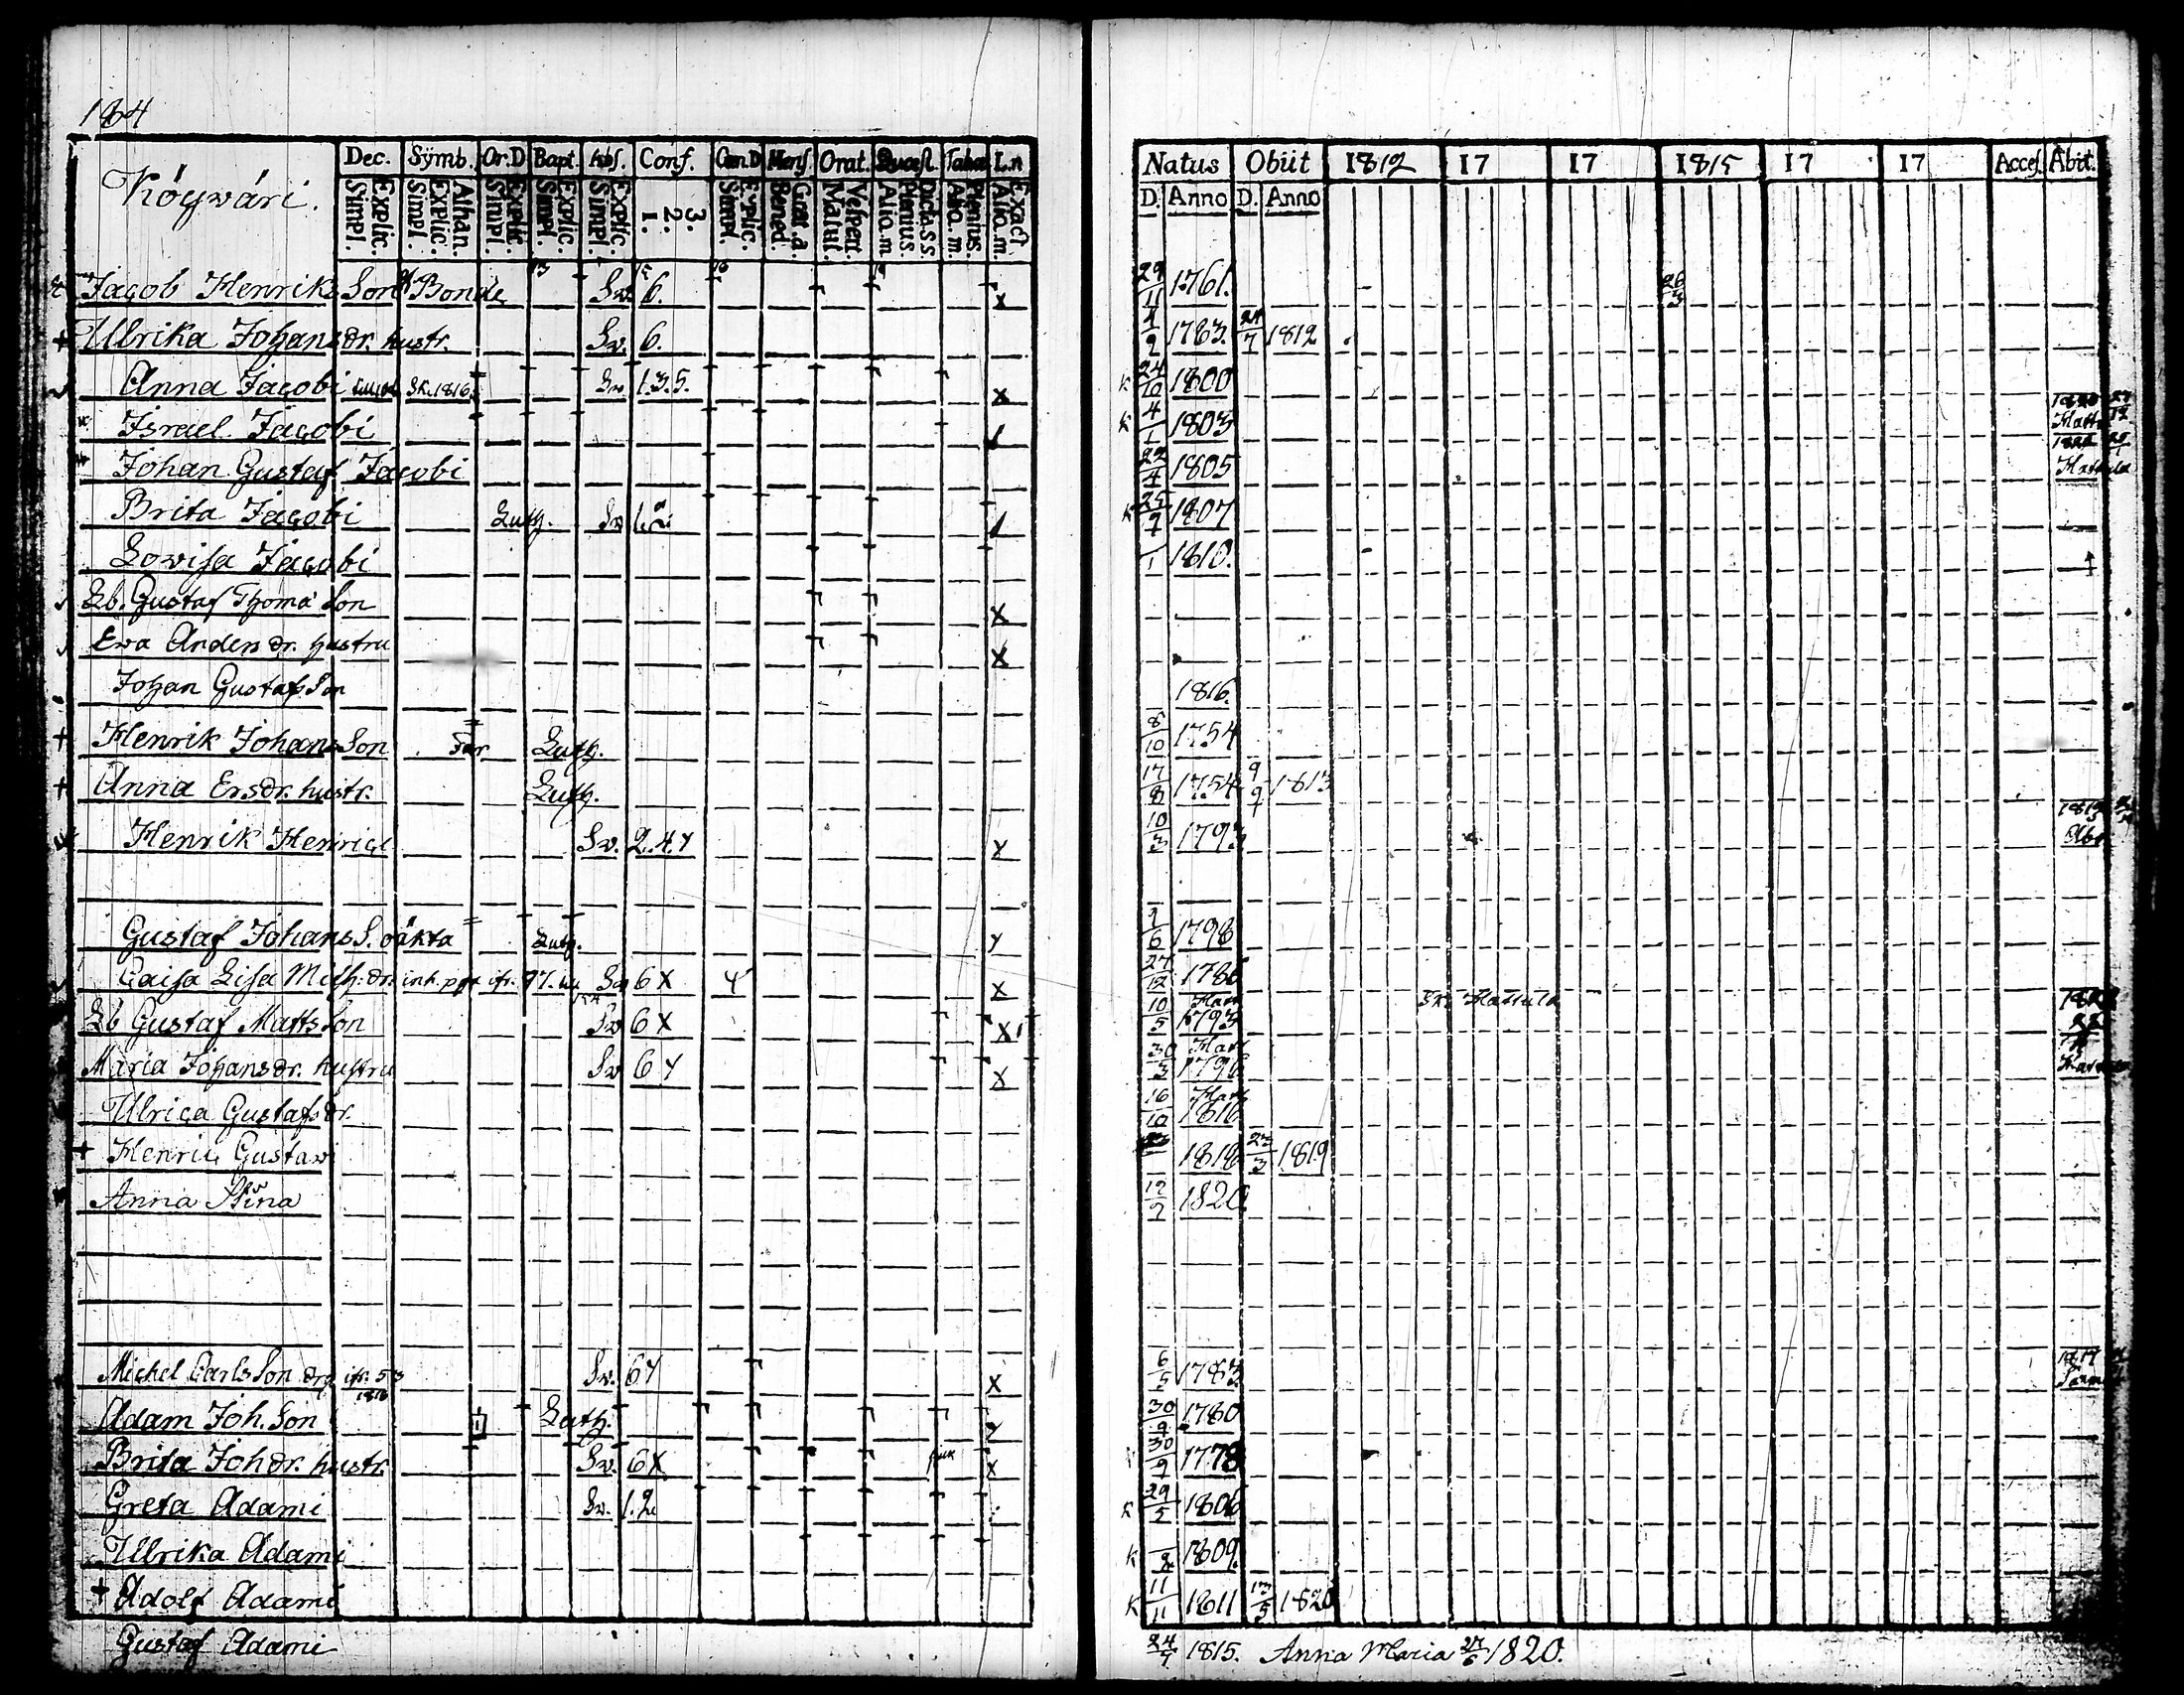 184
Dec. Symb. Or.D Bapt. Abs. Conf. Cœn.D Mens. Orat. Quæst. Tabæ L.n Natus Obiit 1812 17 17 1815 17 17 Acces. Abit.
Köywäri.
Explic. Simpl. Athan. Explic. Simpl. Explic. Simpl. Explic. Simpl. Explic. Simpl. 3. 2. 1. Explic. Simpl. Grat.a. Bened. Vespert. Matut. Dicta.s.s. Plenius. Alio.m Plenius. Alio.m. Exact Alio.m. D. Anno D. Anno
Jacob Henriks Son Bonde Sv. 6. x 29/11 1761. 26/3
+ Ulrika Johansdr. hustr. Sv. 6. 4/9 1763. 24/7 1812
Anna Jacobi Sk. 1816 Sv. 1.3.5. x K 24/10 1800
Israel Jacobi K 4/1 1803
Johan Gustaf Jacobi 22/4 1805
Brita Jacobi Luth. Sv 1.2. K 25/9 1807
Lovisa Jacobi /1 1810. †
Lb. Gustaf Thomä Son X
Eva Andersdr. hustru X
Johan Gustafsson 1816.
+ Henrik Johans Son Luth. 8/10 1754
+ Anna Ersdr. hustr. Luth. 17/8 1754 9/9 1813
Henrik Henrici Sv. 2.4. x 10/3 1793 1819 Åbo
Gustaf Johans S. oäkta Luth. /6 1798
Caisa Lisa Mich:dr. Sv 6 X X 27/12 1786
Lb Gustaf Matts Son Sv 6 X X 10/5 Hatt 1793 Sk. Hattula
Maria Johansdr. hustru Sv 6 X 30/3 Hatt 1796
Ulrica Gustafsdr. 16/10 Hatt 1816
+ Henric Gustavi 1818 23/3 1819
Anna Stina 12/2 1820.
Michel Carls Son ifr. 53 1816 Sv. 6 X 6/5 1783 1817
Adam Joh. Son Luth. 30/9 1780
Brita Johdr. hustr. Sv. 6 X x 30/9 1778
Greta Adami Sv. 1.2. K 29/5 1806
Ulrika Adami K 1809.
+ Adolf Adami K 11/11 1811 13/5 1820
Gustaf Adami 24/7 1815. Anna Maria 24/6 1820.